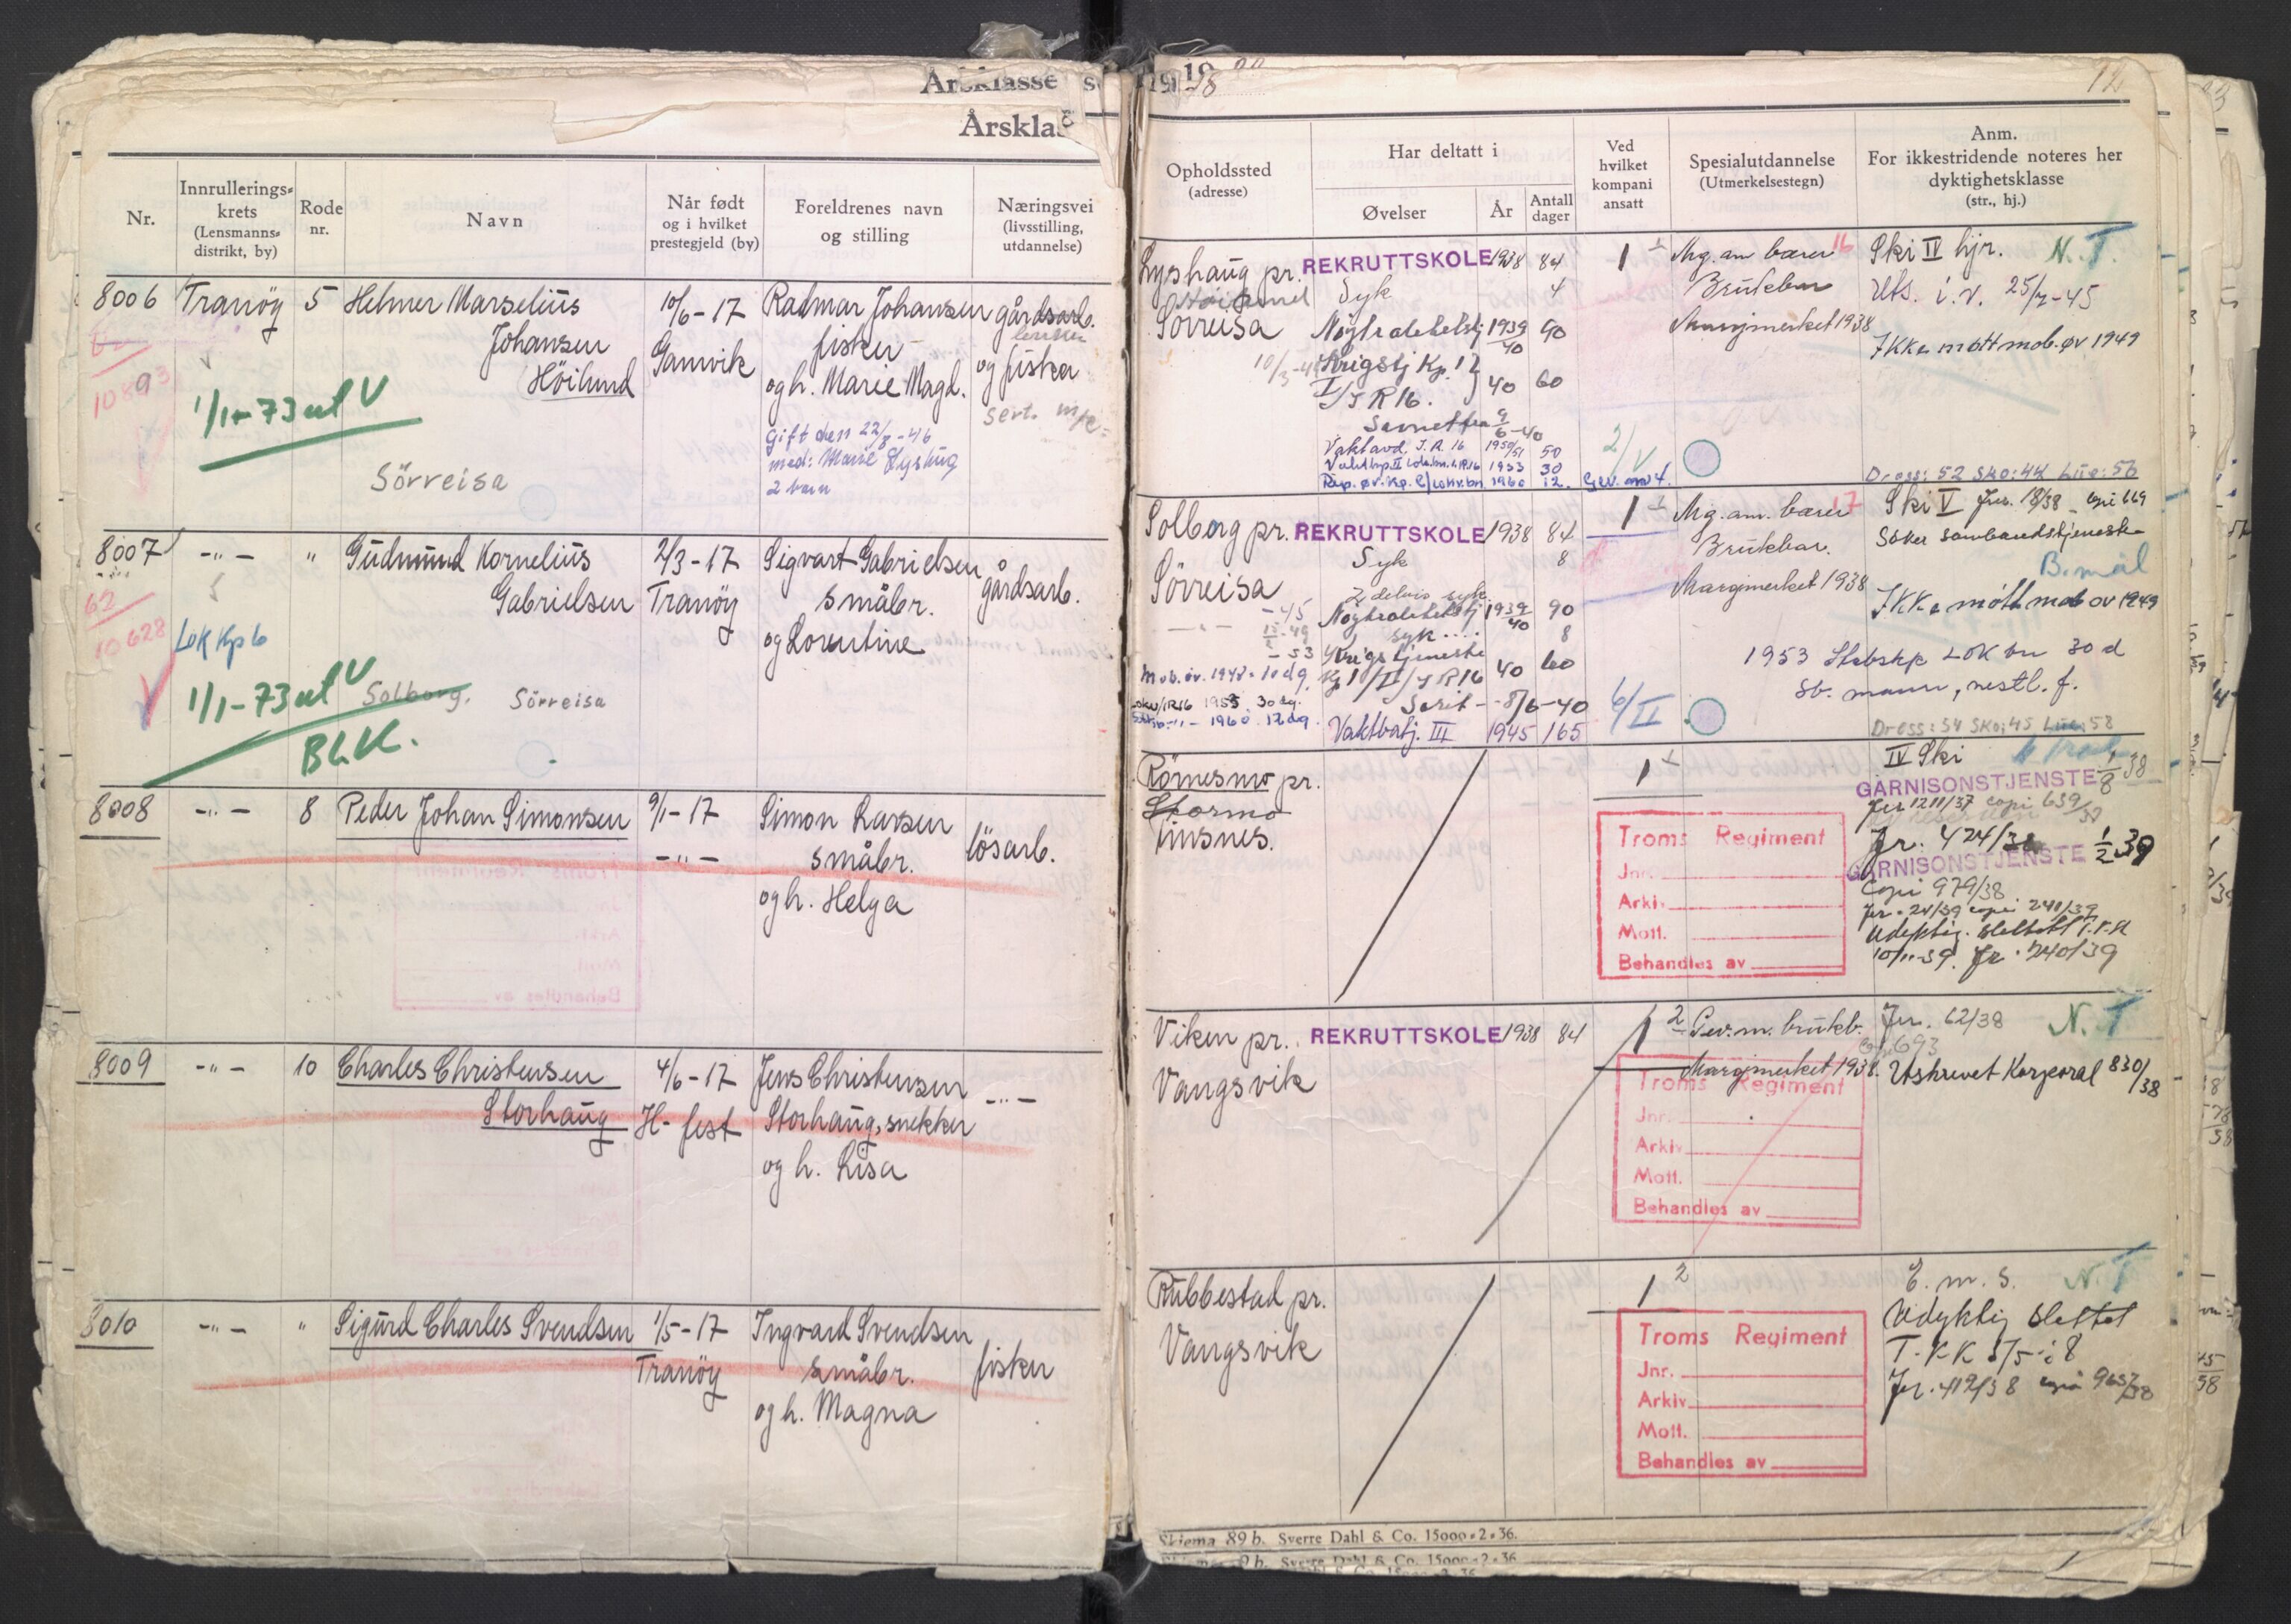 Årsklasse
Årsklas
Nr.
Innrullerings-
krets
(Lensmanns-
distrikt, by)
Rode
nr.
Navn
Når født
og i hvilket
prestegjeld (by)
Foreldrenes navn
og stilling
Næringsvei
(livsstilling,
utdannelse)
8006 Tranöy 5 Helmer Marselius
Johansen
Höilund
10/6-17
Gamvik
Radmar Johansen
fisker
og h. Marie Magd.
gift den 22/8-46
med: Marie Lyshug
2 barn
gårdsarb.
og fisker
sert.
1/1-73 ut V
Sörreisa
8007 -"- " Gudmund Kornelius
Gabrielsen
2/3-17
Tranöy
Sigvart Gabrielsen
småbr.
og Lorentine
gårdsarb.
62
10628
LOK Kp 6
1/1-73 ut V
Solborg. Sörreisa
Bl.K.
8008 -"- 8 Peder Johan Simonsen
9/1-17
-"-
Simon Larsen
småbr.
og h. Helga
lösarb.
8009 -"- 10 Charles Christensen
Storhaug
4/6-17
H-fest
Jens Christensen
Storhaug, snekker
og h. Lisa
-"-
8010 -"- " Sigurd Charles Svendsen
1/5-17
Tranöy
Ingvard Svendsen
småbr.
og h. Magna
fisker
12
Opholdssted
(adresse)
Har deltatt i
Øvelser
År
Antall
dager
Ved
hvilket
kompani
ansatt
Spesialutdannelse
(Utmerkelsestegn)
Anm.
For ikkestridende noteres her
dyktighetsklasse
(str., hj.)
Lyshaug pr.
Sörreisa
REKRUTTSKOLE 1938 84
Syk 4
Nöytralitetstj 1939/40 90
Krigstj Kp. 1
I/IR 16. 40 60
Vaktavd. I.R. 16 1950/51 50
1953 30
Rep. øv. Kp. 1960 12.
1
Mg. am bærer 16
Brukbar
Marsjmerket 1938
Ski IV hjr. N.T.
Uts. i. V. 25/7-45
Ikke møtt mob. øv 1949
Dress: 52 Sko: 44 Lue: 56
Solborg pr.
Sörreisa
REKRUTTSKOLE 1938 84
Syk 8
Nöytralitetstj 1939/40 90
syk.... 8
Krigstjeneste
Kp 1/II/IR 16 40 60
-8/6-40
Vaktbatj. III 1945 165
Mob. öv. 1948. 10 dg.
1955 30 dg.
1960 12 dg.
6/II
1
Mg. am. bærer 17
Brukbar.
Marsjmerket 1938
Ski V Jnr. 18/38 - copi 669
Söker sambandstjeneste
B. mål
Ikke møtt mob øv 1949
1953 Stabskp LOK bn 30 d
Sb. mann, nestl. f.
Dress: 54 Sko: 45 Lue: 58
Römesmo pr.
Stormo
Finsnes.
1
IV Ski
GARNISONSTJENSTE 1/8 38
Jnr 1211/37 copi 639/38
Jr. 424/38
GARNISONSTJENSTE 1/2 39
Copi 979/38
Jnr. 24/39 copi 241/39
Udyktig. slettet
10/11-39. Jr. 740/39
Troms Regiment
Jnr.
Arkiv
Mott.
Behandles av
Viken pr.
Vangsvik
REKRUTTSKOLE 1938 84
1 2
Gev. m. brukb.
Marsjmerket 1938.
Jnr. 62/38 N.T
693
Utskrevet Korporal 830/38
Troms Regiment
Jnr.
Arkiv
Mott.
Behandles av
Rubbestad pr.
Vangsvik
1 2
E. m. s. N.T
Udyktig slettet
Jnr. 419/38
Troms Regiment
Jnr.
Arkiv
Mott.
Behandles av
Skjema 89 b. Sverre Dahl & Co. 15000-2-36.